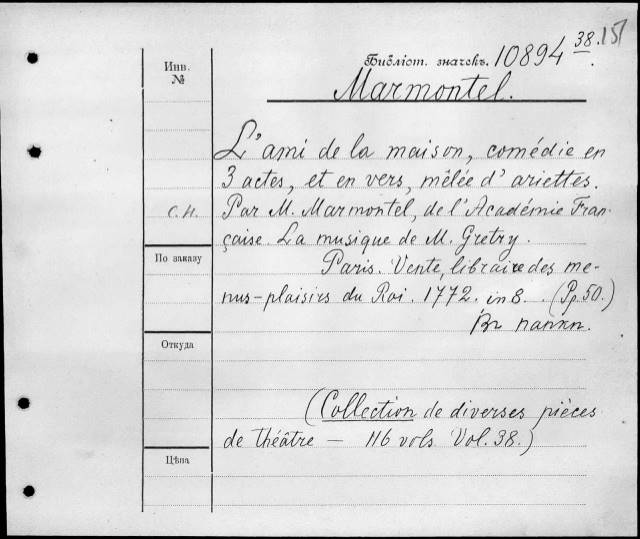 Инв.
№
Библіот. значекъ. 10894 38. 157
Marmontel.
L'ami de la maison, comédie en
3 actes, et en vers, mêlée d'ariettes.
С.Н. Par M. Marmontel, de l'Académie Fran-
çaise. La musique de M. Gretry.
По заказу
Paris. Vente, libraire des me-
nus-plaisirs du Roi. 1772. in 8. (Pp. 50.)
Въ папкѣ.
Откуда
(Collection de diverses pièces
de théâtre — 116 vols Vol. 38.)
Цѣна